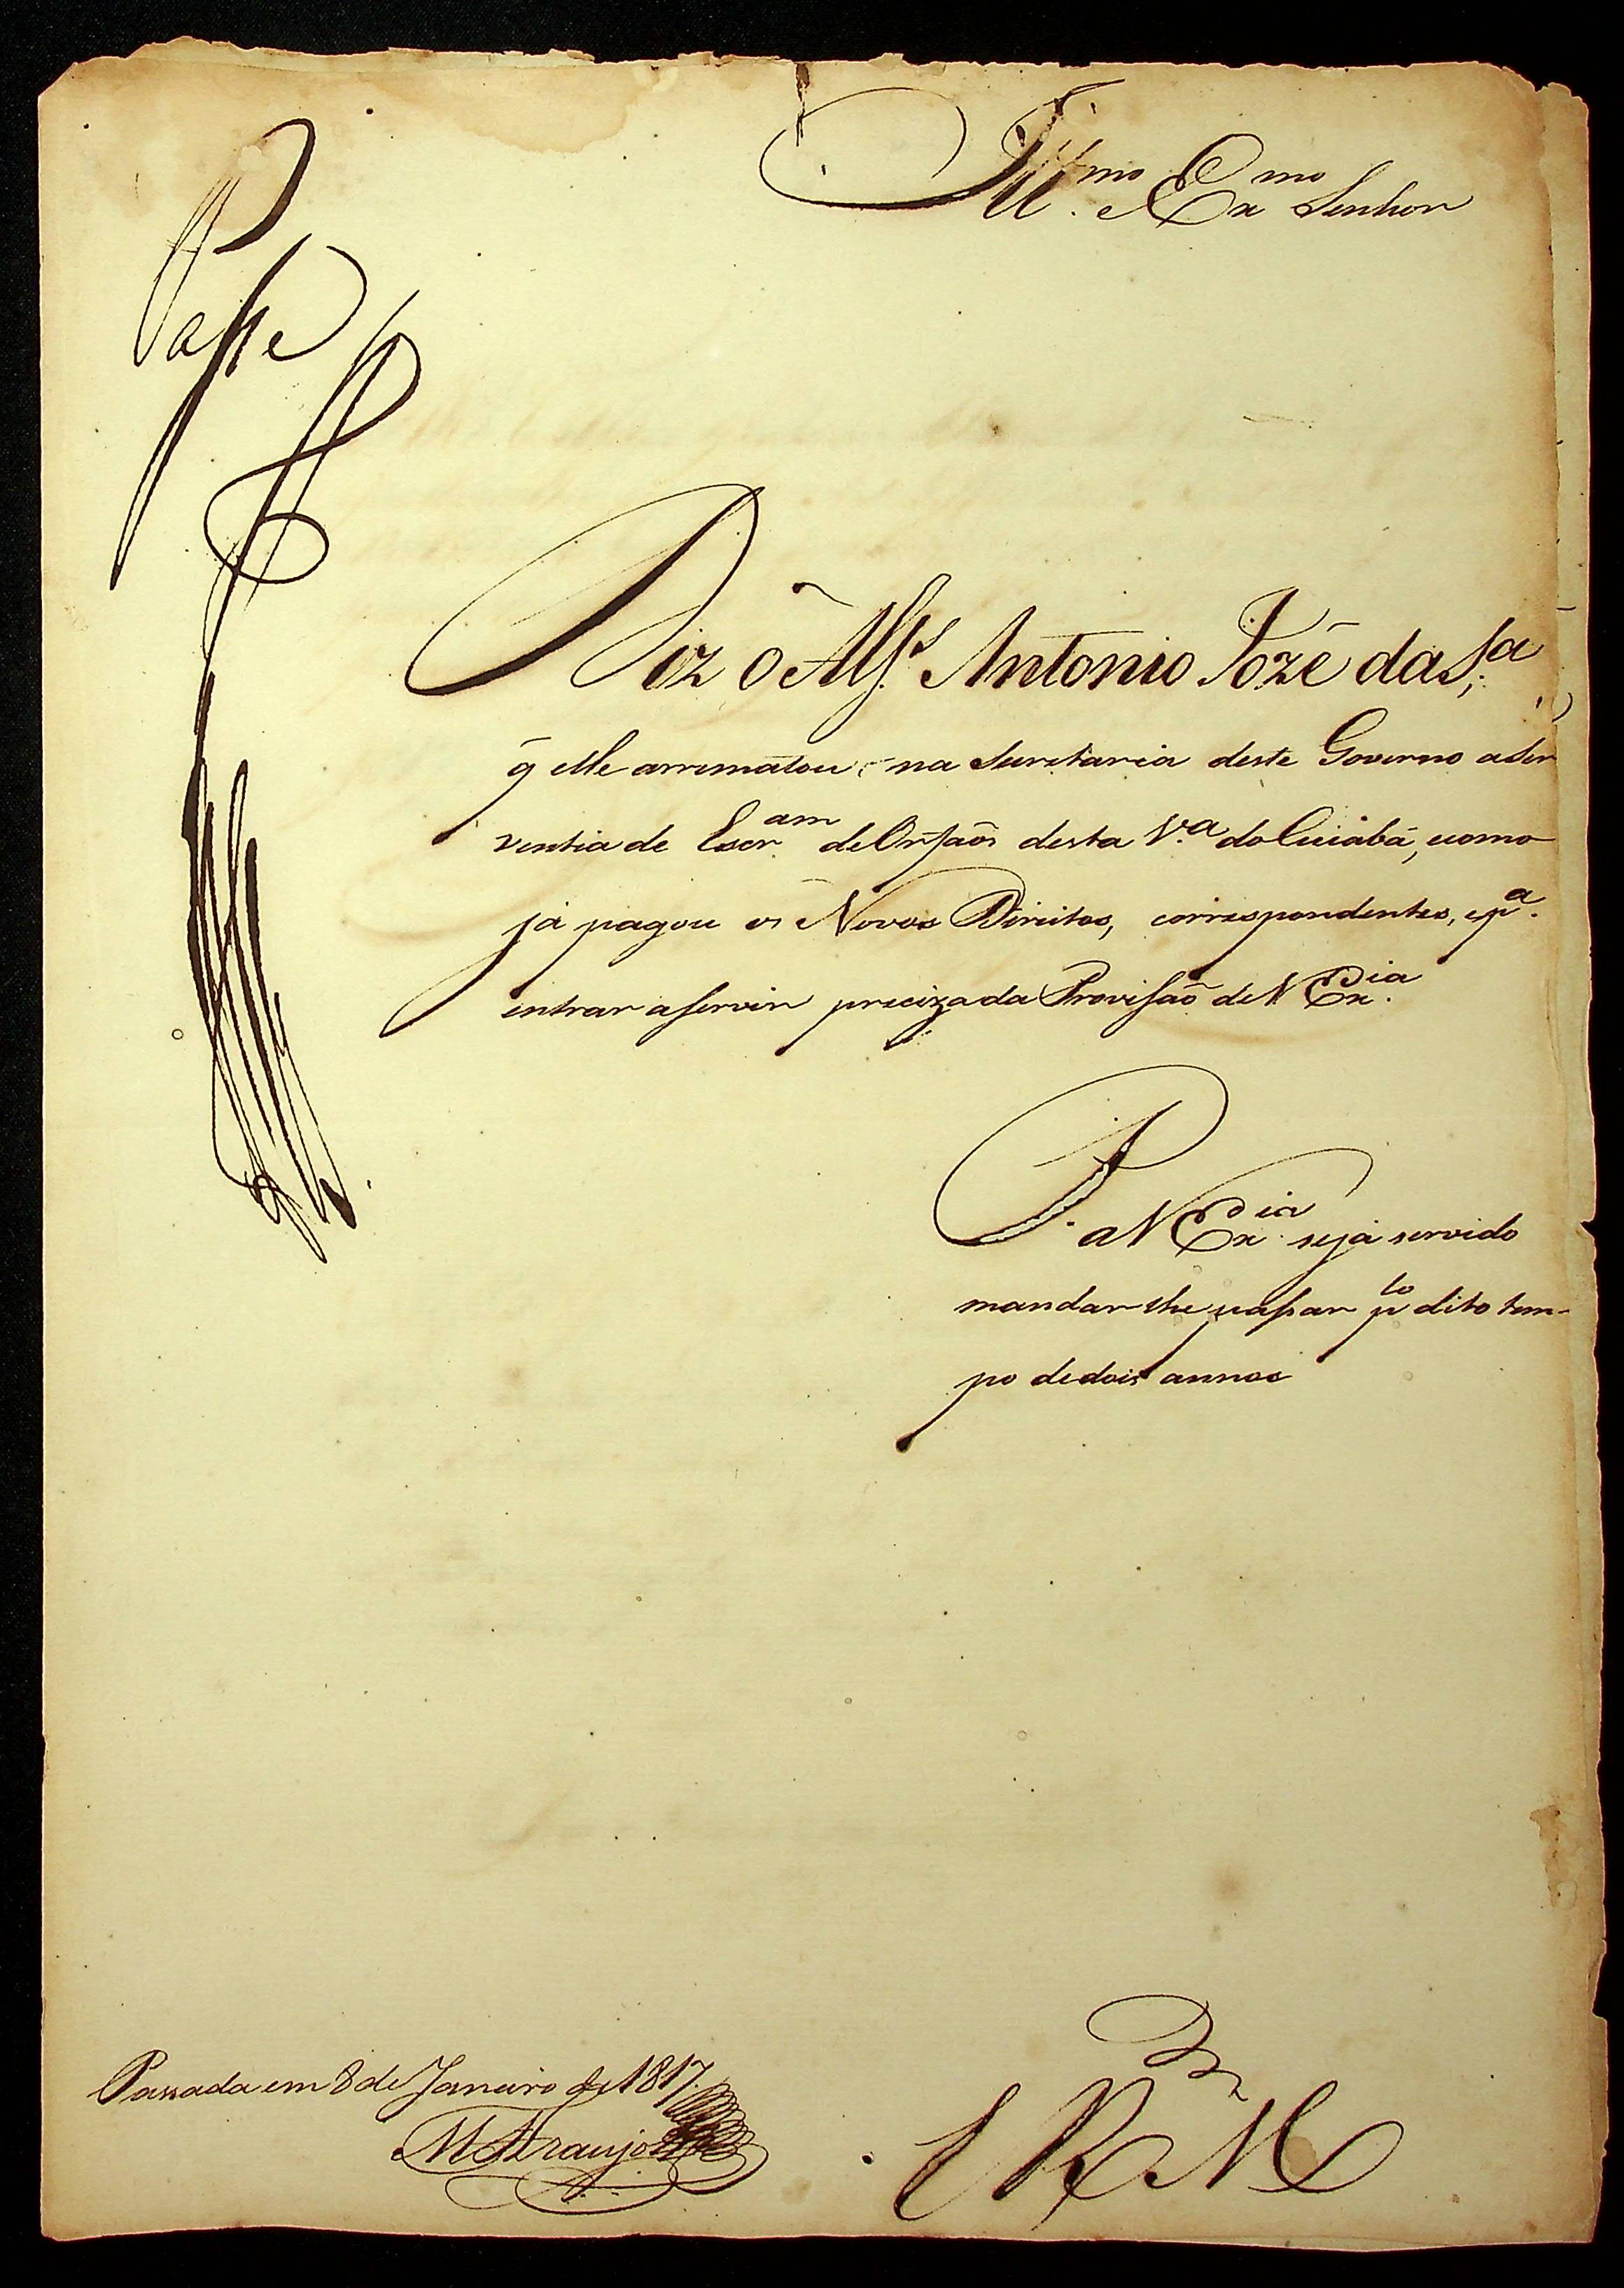 Ill.mo Ex.mo Senhor
Passe
Diz o Alf.s Antonio Jozé da S.a
q̃ elle arrematou na Secretaria deste Governo a Ser
ventia de Escr.am de Orfaõs desta V.a do Cuiabá, e como
já pagou os Novos Direitos, correspondentes, e p.a
entrar a servir preciza da Provisaõ de V Ex.ia
P. a V Ex.ia seja servido
mandar lhe passar p.lo dito tem-
po de dois annos
E R M.ce
Passada em 8 de Janeiro de 1817.
M Araujo